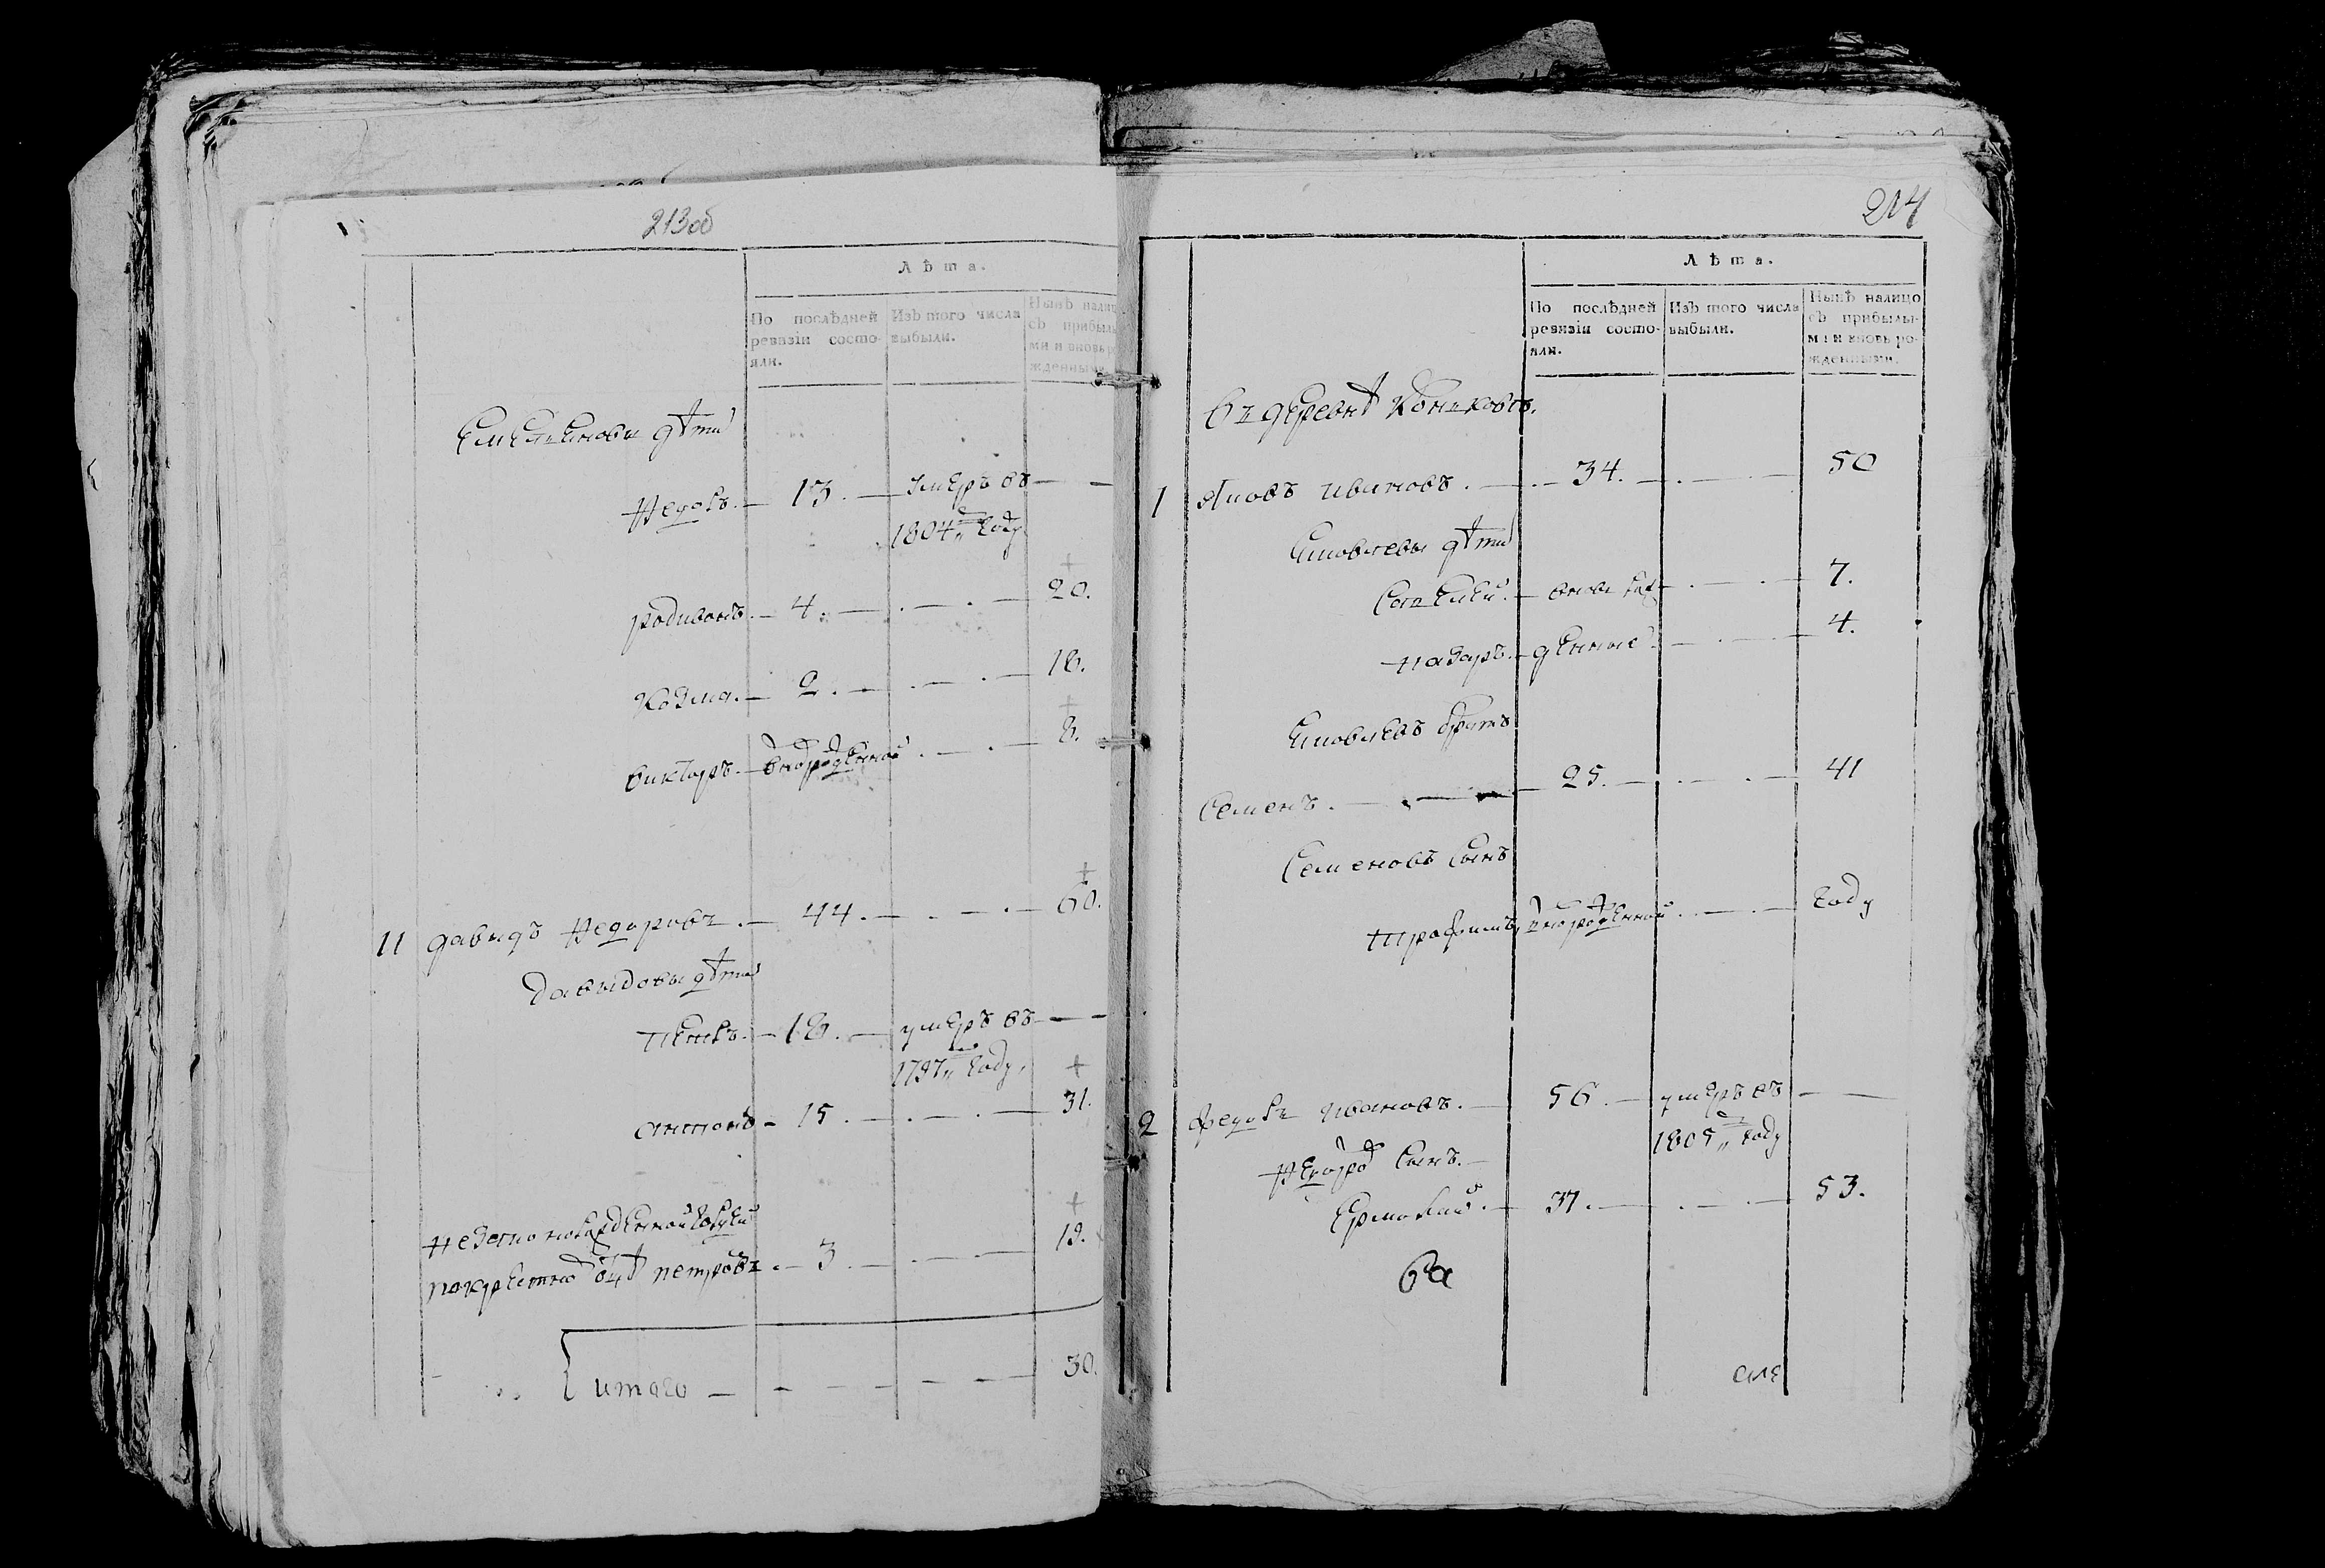 213об
Лѣта.
По послѣдней ревизіи состояли.
Изъ того числа выбыли.
Нынѣ налицо съ прибылыми и вновь рожденными.
Емельеновы дѣти
Федоръ. — 13. — умеръ въ —
1804м году
+
родивонъ. — 4. — 20.
козма. — 2. — 18.
+
викторъ. — вновьрожденной — 8.
+
11 давыдъ Федоровъ. — 44. — 60.
давыдовы дѣти
— 18. — умеръ въ —
1797м году.
+
антонъ — 15. — 31.
+
покрестно отцѣ петровъ. — 3 — 19.
итого — 30.
214
Лѣта.
По послѣдней ревизіи состояли.
Изъ того числа выбыли.
Нынѣ налицо съ прибылыми и вновь рожденными.
въ деревнѣ
1 Яковъ ивановъ. — 34. — 50
Яковлевы дѣти
— вновь рож — 7.
назаръ. — денные — 4.
Яковлевъ братъ
Семенъ. — 25. — 41
Семеновъ сынъ
трофимъ, вновьрожденной. — году
2 федоръ ивановъ. — 56. — умеръ въ —
1805м году
Федоров сынъ. —
Ермолай. — 37. — 53.
ва
сле